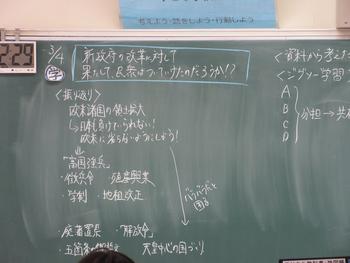 考えよう・話をしよう・行動しよう
2:29
3/4
学
新政府の改革に対して
果たして、民衆はついていけたのだろうか!?
<振り返り>
欧米諸国の領土拡大
→日本も負けていられない!
欧米に劣らないようにしよう!
↓
「富国強兵」
・徴兵令 ・殖産興業
・学制 ・地租改正
・廃藩置県 ・「解放令」
・五箇条の 天皇中心の国づくり
<資料から考えた
<ジグソー学習
A
B
C
D
分担→共